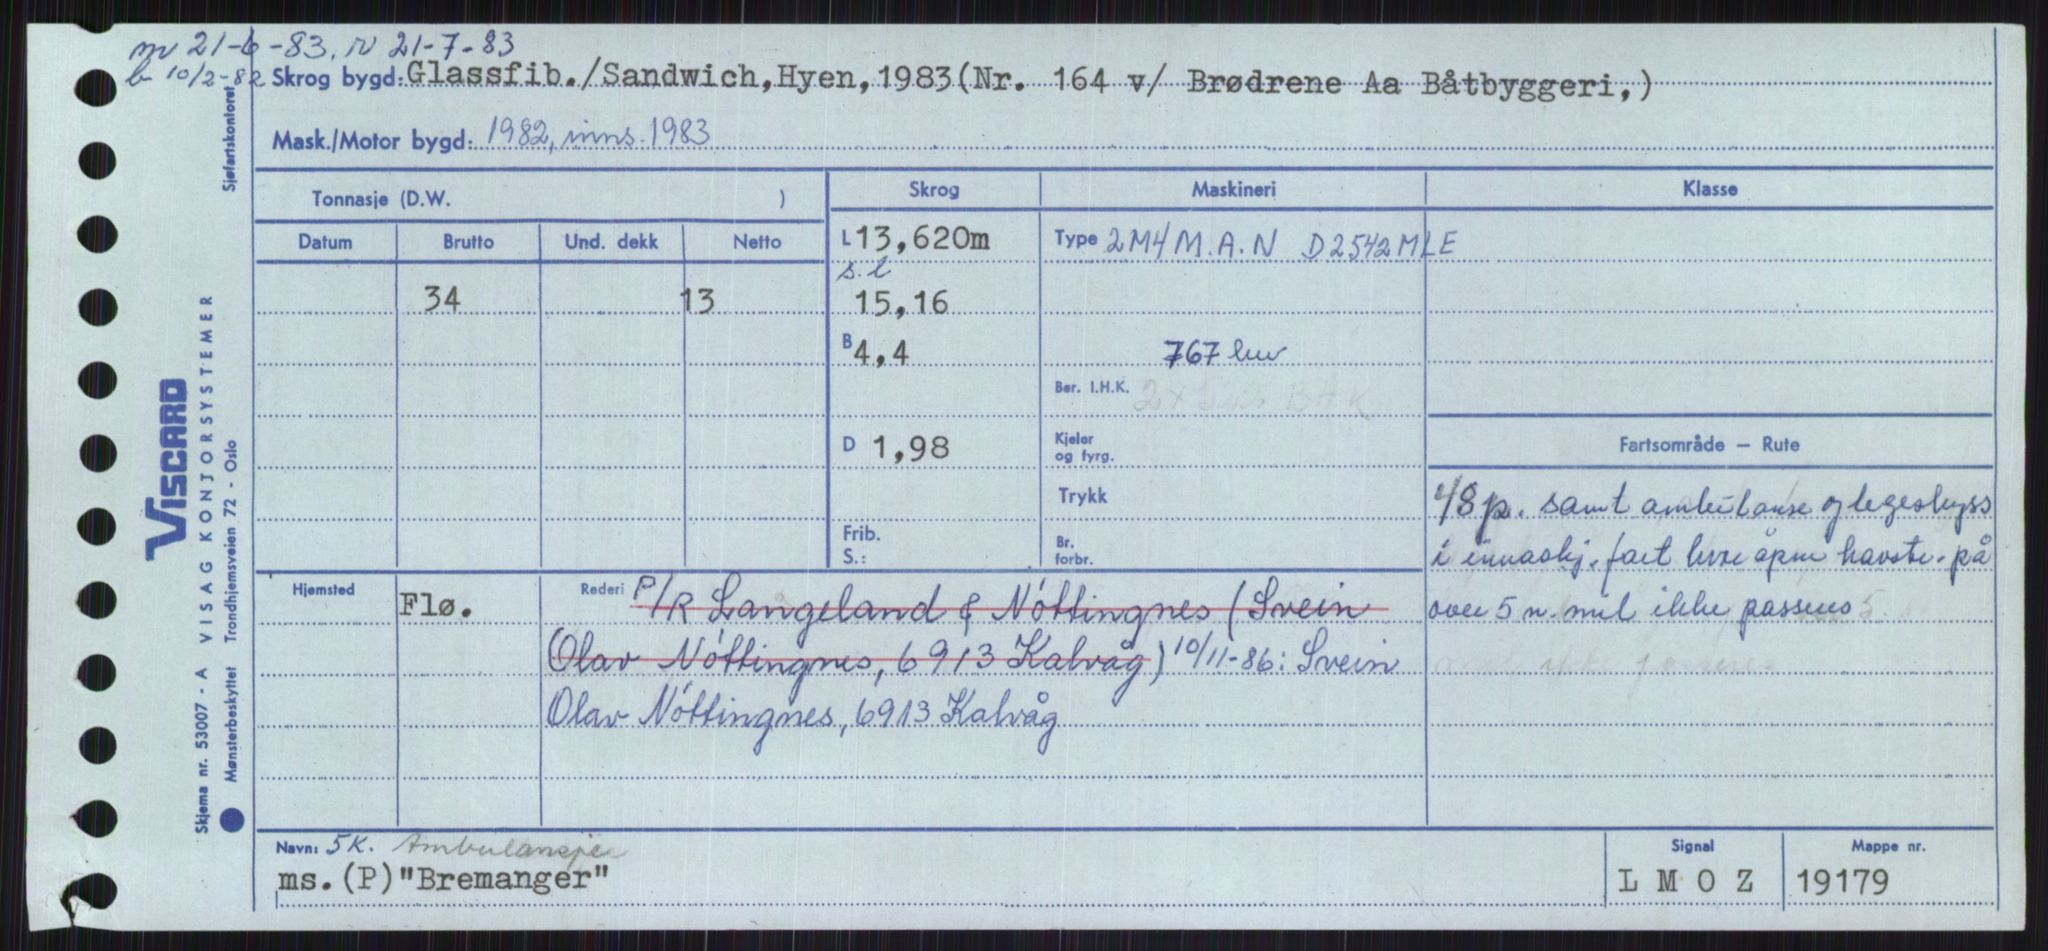 m 21-6-83, r 21-7-83
b 10/2-82 Skrog bygd: Glassfib./Sandwich, Hyen, 1983(Nr. 164 v/ Brødrene Aa Båtbyggeri,)
Mask./Motor bygd: 1982, inns. 1983
Sjøfartskontoret
Tonnasje (D.W. )
Skrog
Maskineri
Klasse
Datum Brutto Und. dekk Netto
L 13,620m
Type 2M4 M.A.N D2542MLE
s.l
34 13
15,16
B 4,4
767 luv
Ber. I.H.K.
D 1,98
Kjeler
og fyrg.
Fartsområde – Rute
Trykk
48 p. samt ambulanse og legeskyss
Frib.
S.:
Br.
forbr.
i innaskj. fart høre åpne havstr. på
over 5 n. mil ikke passeres
Hjemsted Flø.
Rederi P/R Langeland & Nóttingnes (Svein
Olav Nóttingnes, 6913 Kalvåg) 10/11-86: Svein
Olav Nóttingnes, 6913 Kalvåg
Navn: 5K. Ambulanse
ms.(P)"Bremanger"
Signal
L M O Z
Mappe nr.
19179
VISCARD
VISAG KONJORSYSTEMER
Skjema nr. 53007 - A
Mønsterbeskyttet Trondhjemsveien 72 - Oslo